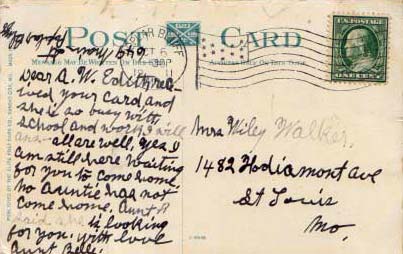 POST CARD
MESSAGE MAY BE WRITTEN ON THIS SIDE
ADDRESS ONLY ON THIS SIDE
POPLAR BLUFF
OCT 6
U.S. POSTAGE
ONE CENT
649 Main st
Poplar Bluff
Dear A. W. Edith rec-
ived your card and
she is so busy with
school and work I will
ans- all are well. Yes I
am still here waiting
for you to come home
no Auntie has not
come home. Aunt
said she is looking
for you. with love
Aunt Belle.
Mrs Wiley Walker.
1482 Hodiamont ave
St Louis
Mo.